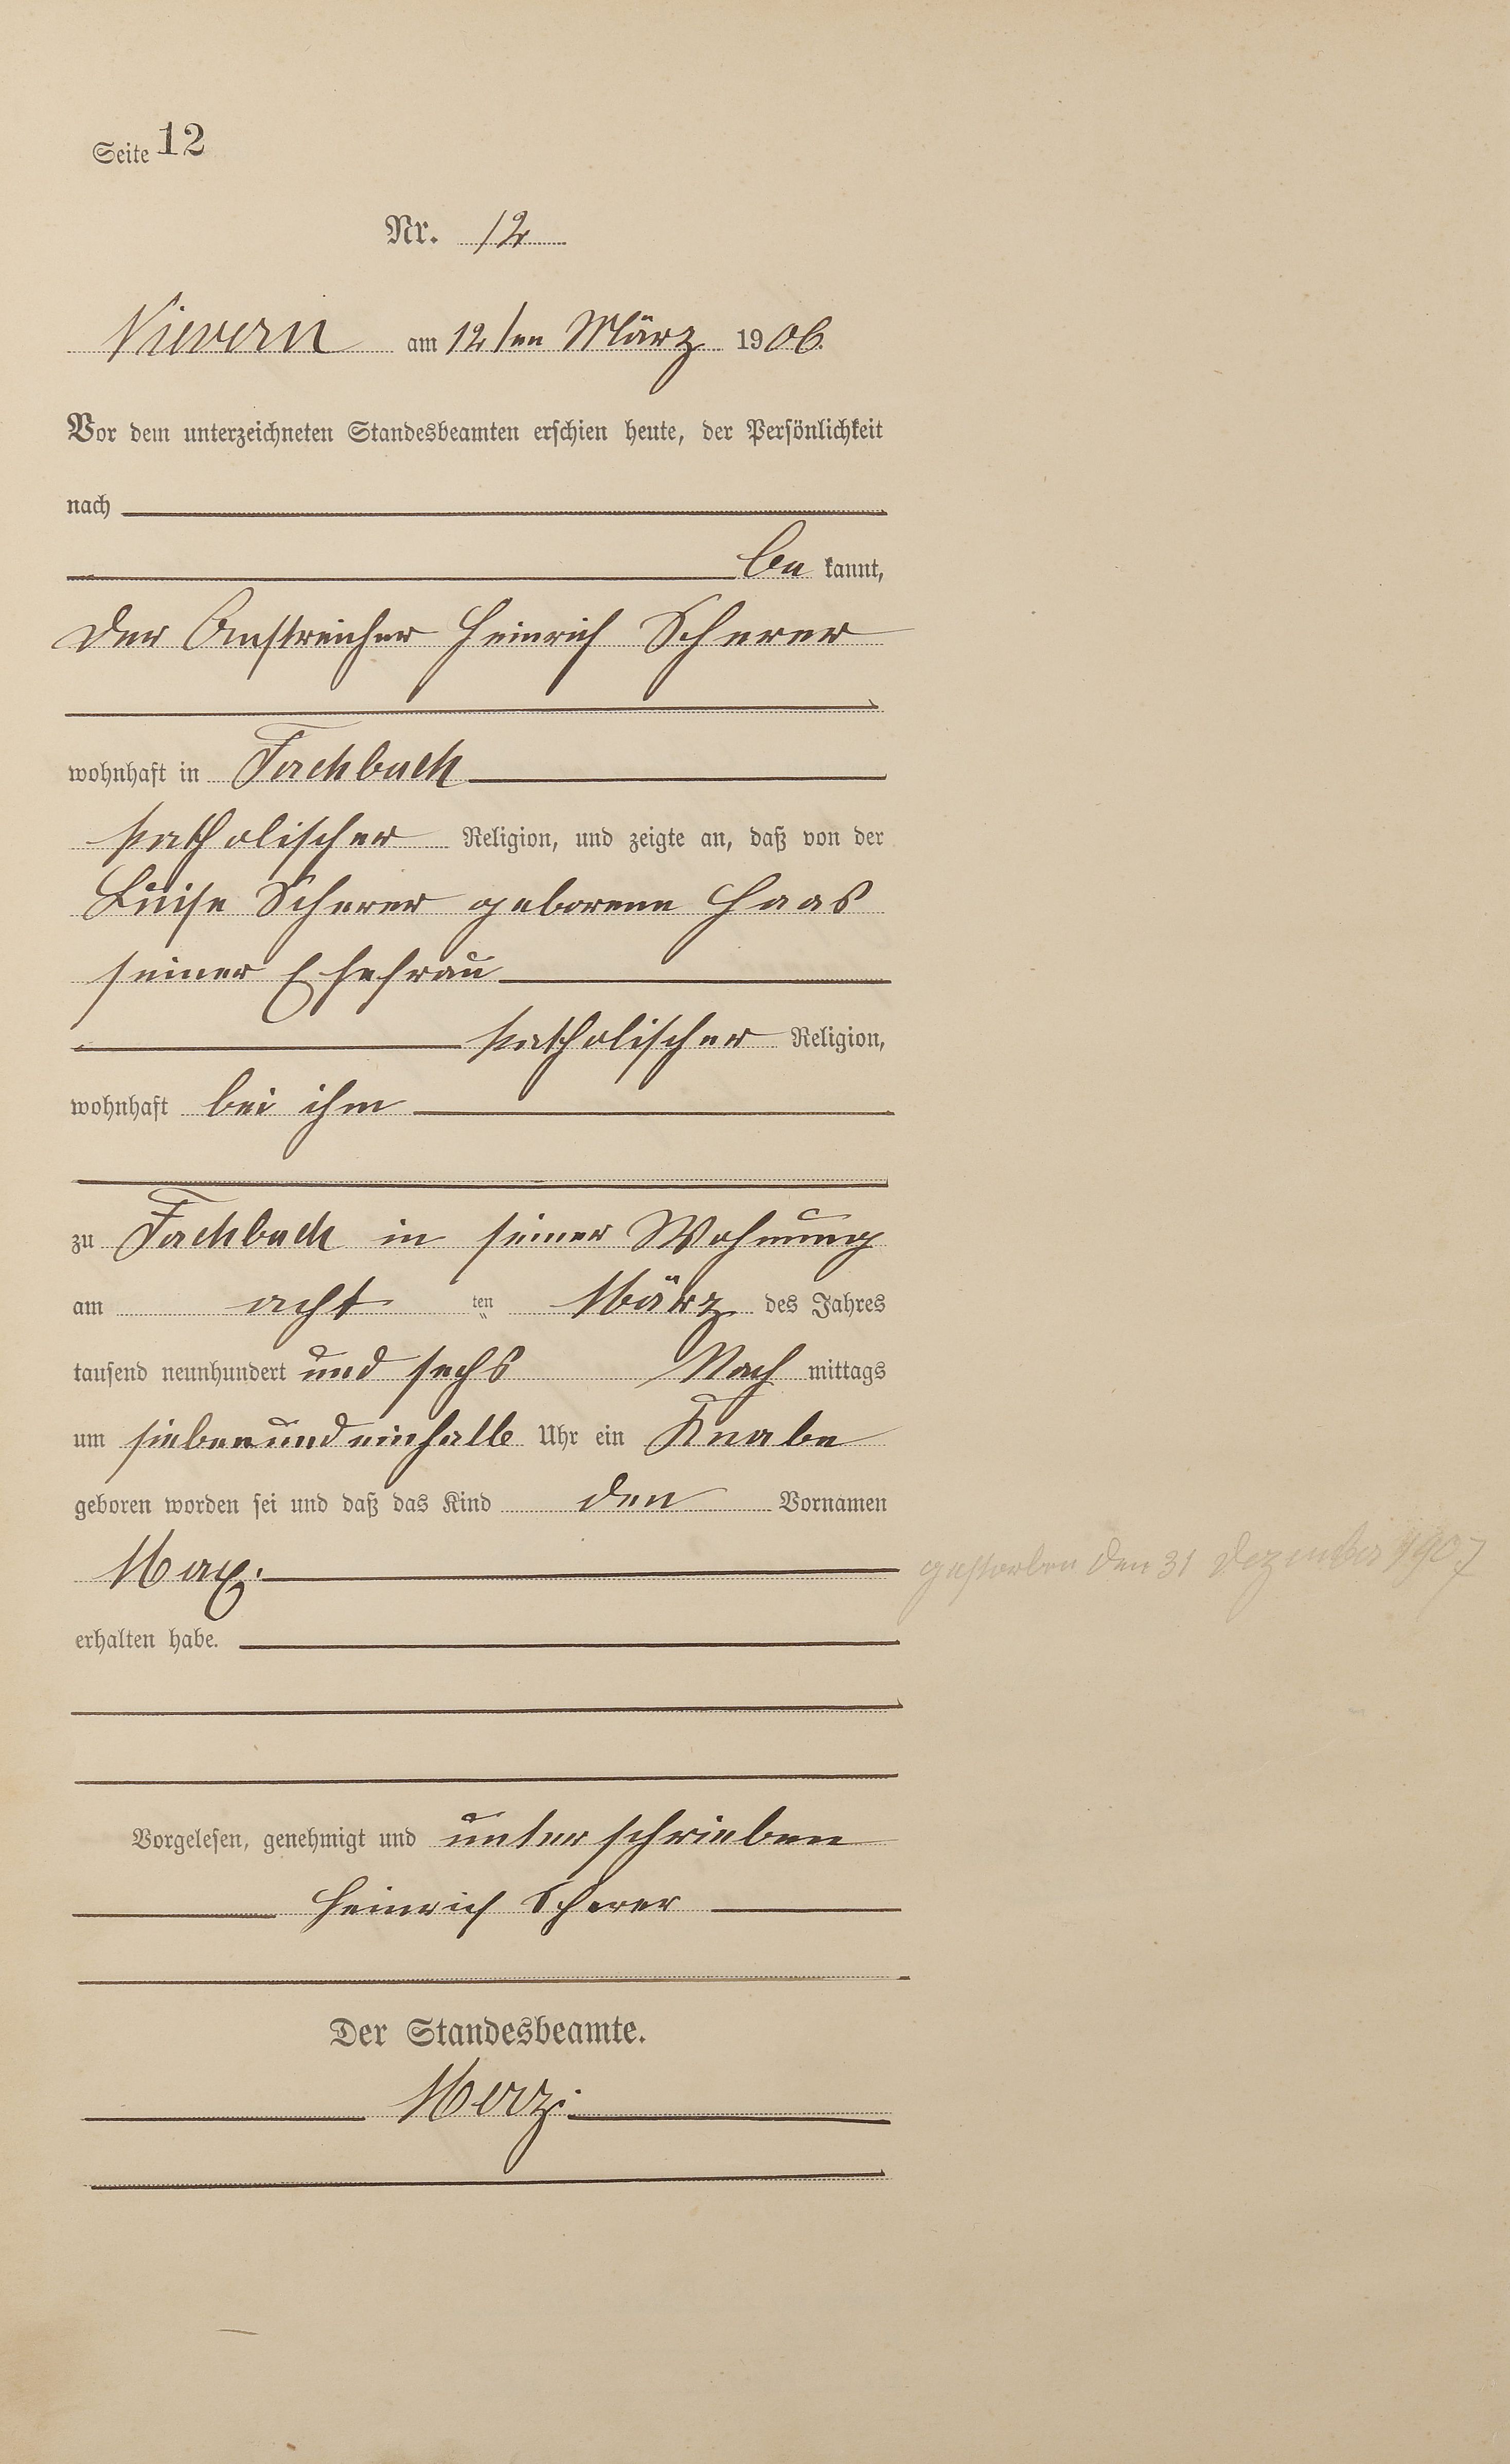 Seite 12
Nr. 12
Nievern am 12ten März 1906.
Vor dem unterzeichneten Standesbeamten erschien heute, der Persönlichkeit
nach
be kannt,
der Anstreicher Heinrich Scherer
wohnhaft in Fachbach
katholischer Religion, und zeigte an, daß von der
Luise Scherer geborene Haas
seiner Ehefrau
katholischer Religion,
wohnhaft bei ihm
zu Fachbach in seiner Wohnung
am acht ten März des Jahres
tausend neunhundert und sechs Nach mittags
um siebenundeinhalb Uhr ein Knabe
geboren worden sei und daß das Kind den Vornamen
Max. gestorben den 31 Dezember 1907
erhalten habe.
Vorgelesen, genehmigt und unterschrieben
Heinrich Scherer
Der Standesbeamte.
Merz.